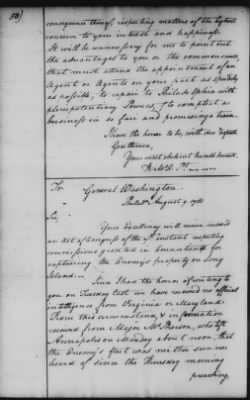 consequence to y respecting matters of the highest
concern to your interest and happiness.
It will be unnecessary for me to point out
the advantages to you or the common cause,
that must attend the appointment of an
Agent or Agents on your part as speedily
as possible, to repair to Philadelphia with
plenipotentiary Powers, to complete a
business in so fair and promising a train.
I have the honor to be, with due Respect
Gentlemen,
Your most obedient humble Servant
To General Washington.
Philada. August 9
Sir
Your Excellency will receive inclosed
an Act of Congress of the 7th instant respecting
commissions granted in Connecticut for
capturing the Enemy's property on Long
Island.
Since I had the honor of writing to
you on Tuesday last we have received no official
intelligence from Virginia or Maryland.
From this circumstance, & information
received from Major McPherson, who left
Annapolis on Monday about noon, that
the Enemy's fleet was neither seen nor
heard of since the Thursday morning
preceeding,